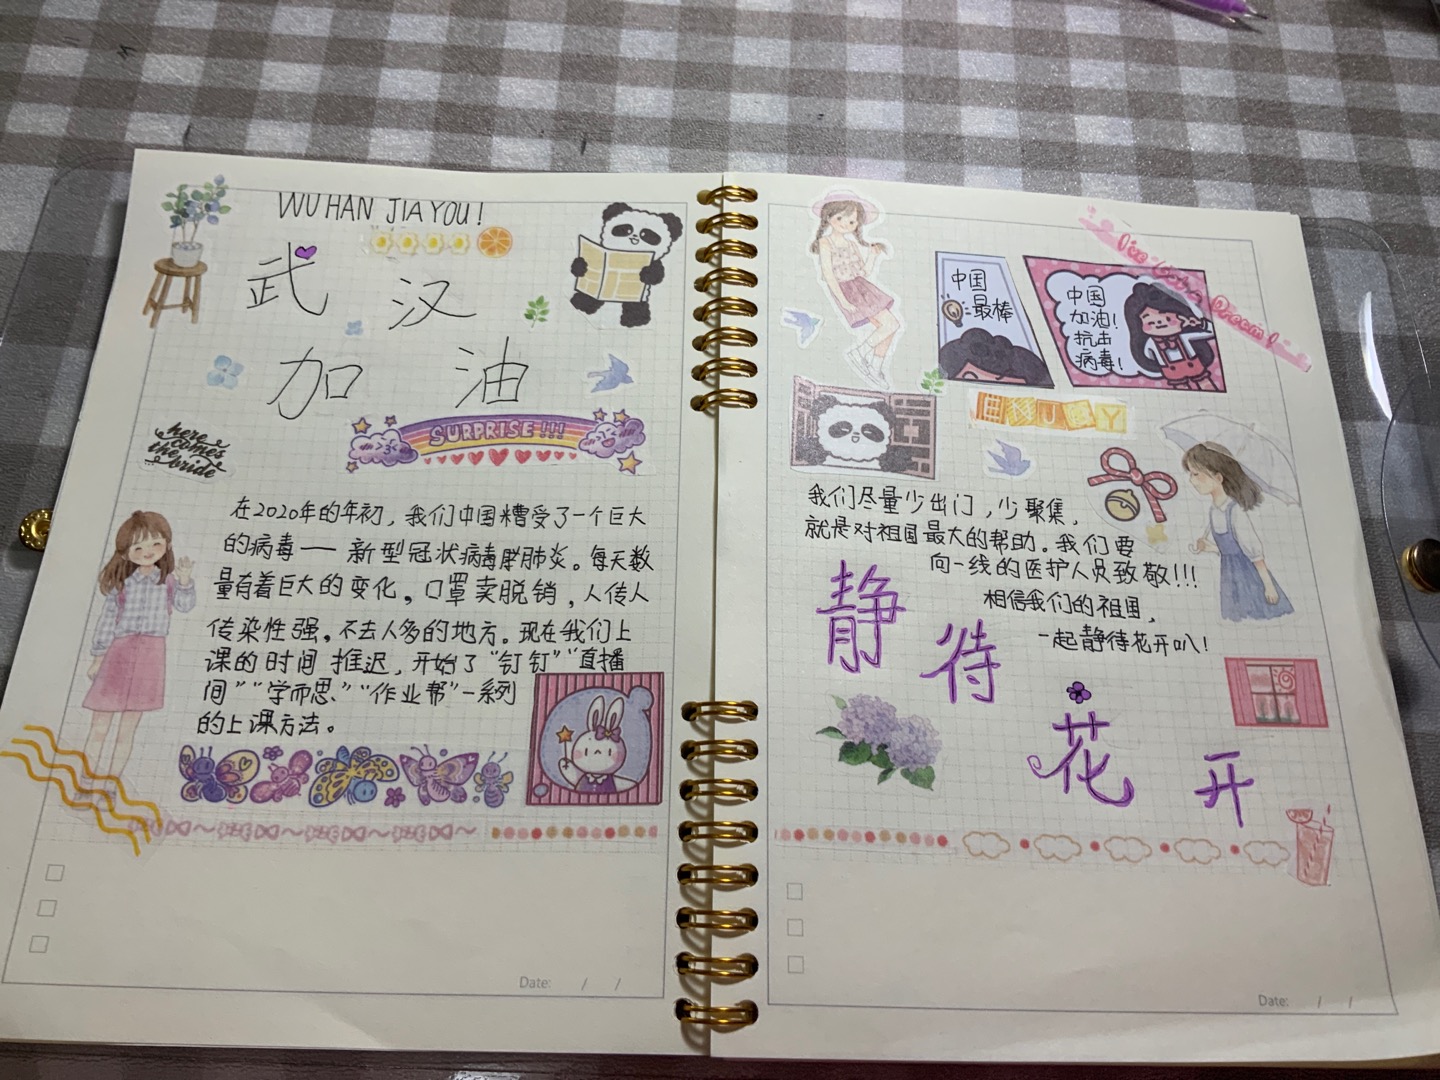 WUHAN JIAYOU!
武 汉
加 油
SURPRISE!!!
here
comes
the
bride
在2020年的年初，我们中国糟受了一个巨大
的病毒——新型冠状病毒肺炎。每天数
量有着巨大的变化，口罩卖脱销，人传人
传染性强，不去人多的地方。现在我们上
课的时间推迟，开始了“钉钉”“直播
间”“学而思”“作业帮”一系列
的上课方法。
Date: / /
中国
最棒
中国
加油!
抗击
病毒!
我们尽量少出门，少聚集，
就是对祖国最大的帮助。我们要
向一线的医护人员致敬!!!
相信我们的祖国，
一起静待花开叭!
静
待
花
开
Date: / /